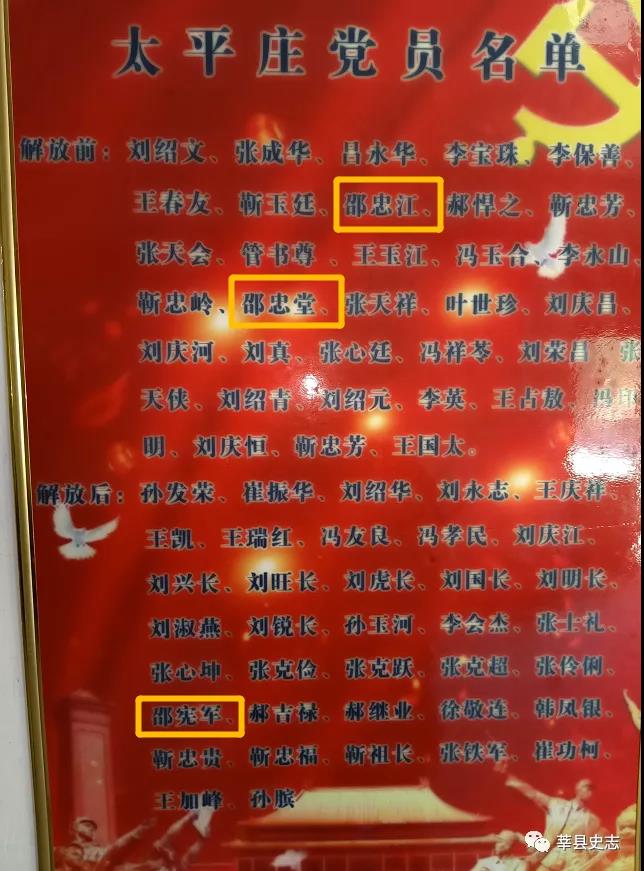 太平庄党员名单
解放前：刘绍文、张成华、吕永华、李宝珠、李保善、
王春友、靳玉廷、邵忠江、郝悍之、靳忠芳、
张天会、管书尊、王玉江、冯玉合、李永山、
靳忠岭、邵忠堂、张天祥、叶世珍、刘庆昌、
刘庆河、刘真、张心廷、冯祥苓、刘荣昌、张
天侠、刘绍青、刘绍元、李英、王占敖、冯印
明、刘庆恒、靳忠芳、王国太。
解放后：孙发荣、崔振华、刘绍华、刘永志、王庆祥、
王凯、王瑞红、冯友良、冯孝民、刘庆江、
刘兴长、刘旺长、刘虎长、刘国长、刘明长、
刘淑燕、刘锐长、孙玉河、李会杰、张士礼、
张心坤、张克俭、张克跃、张克超、张伶俐、
邵宪军、郝吉禄、郝继业、徐敬连、韩凤银、
靳忠贵、靳忠福、靳祖长、张铁军、崔功柯、
王加峰、孙膑
莘县史志